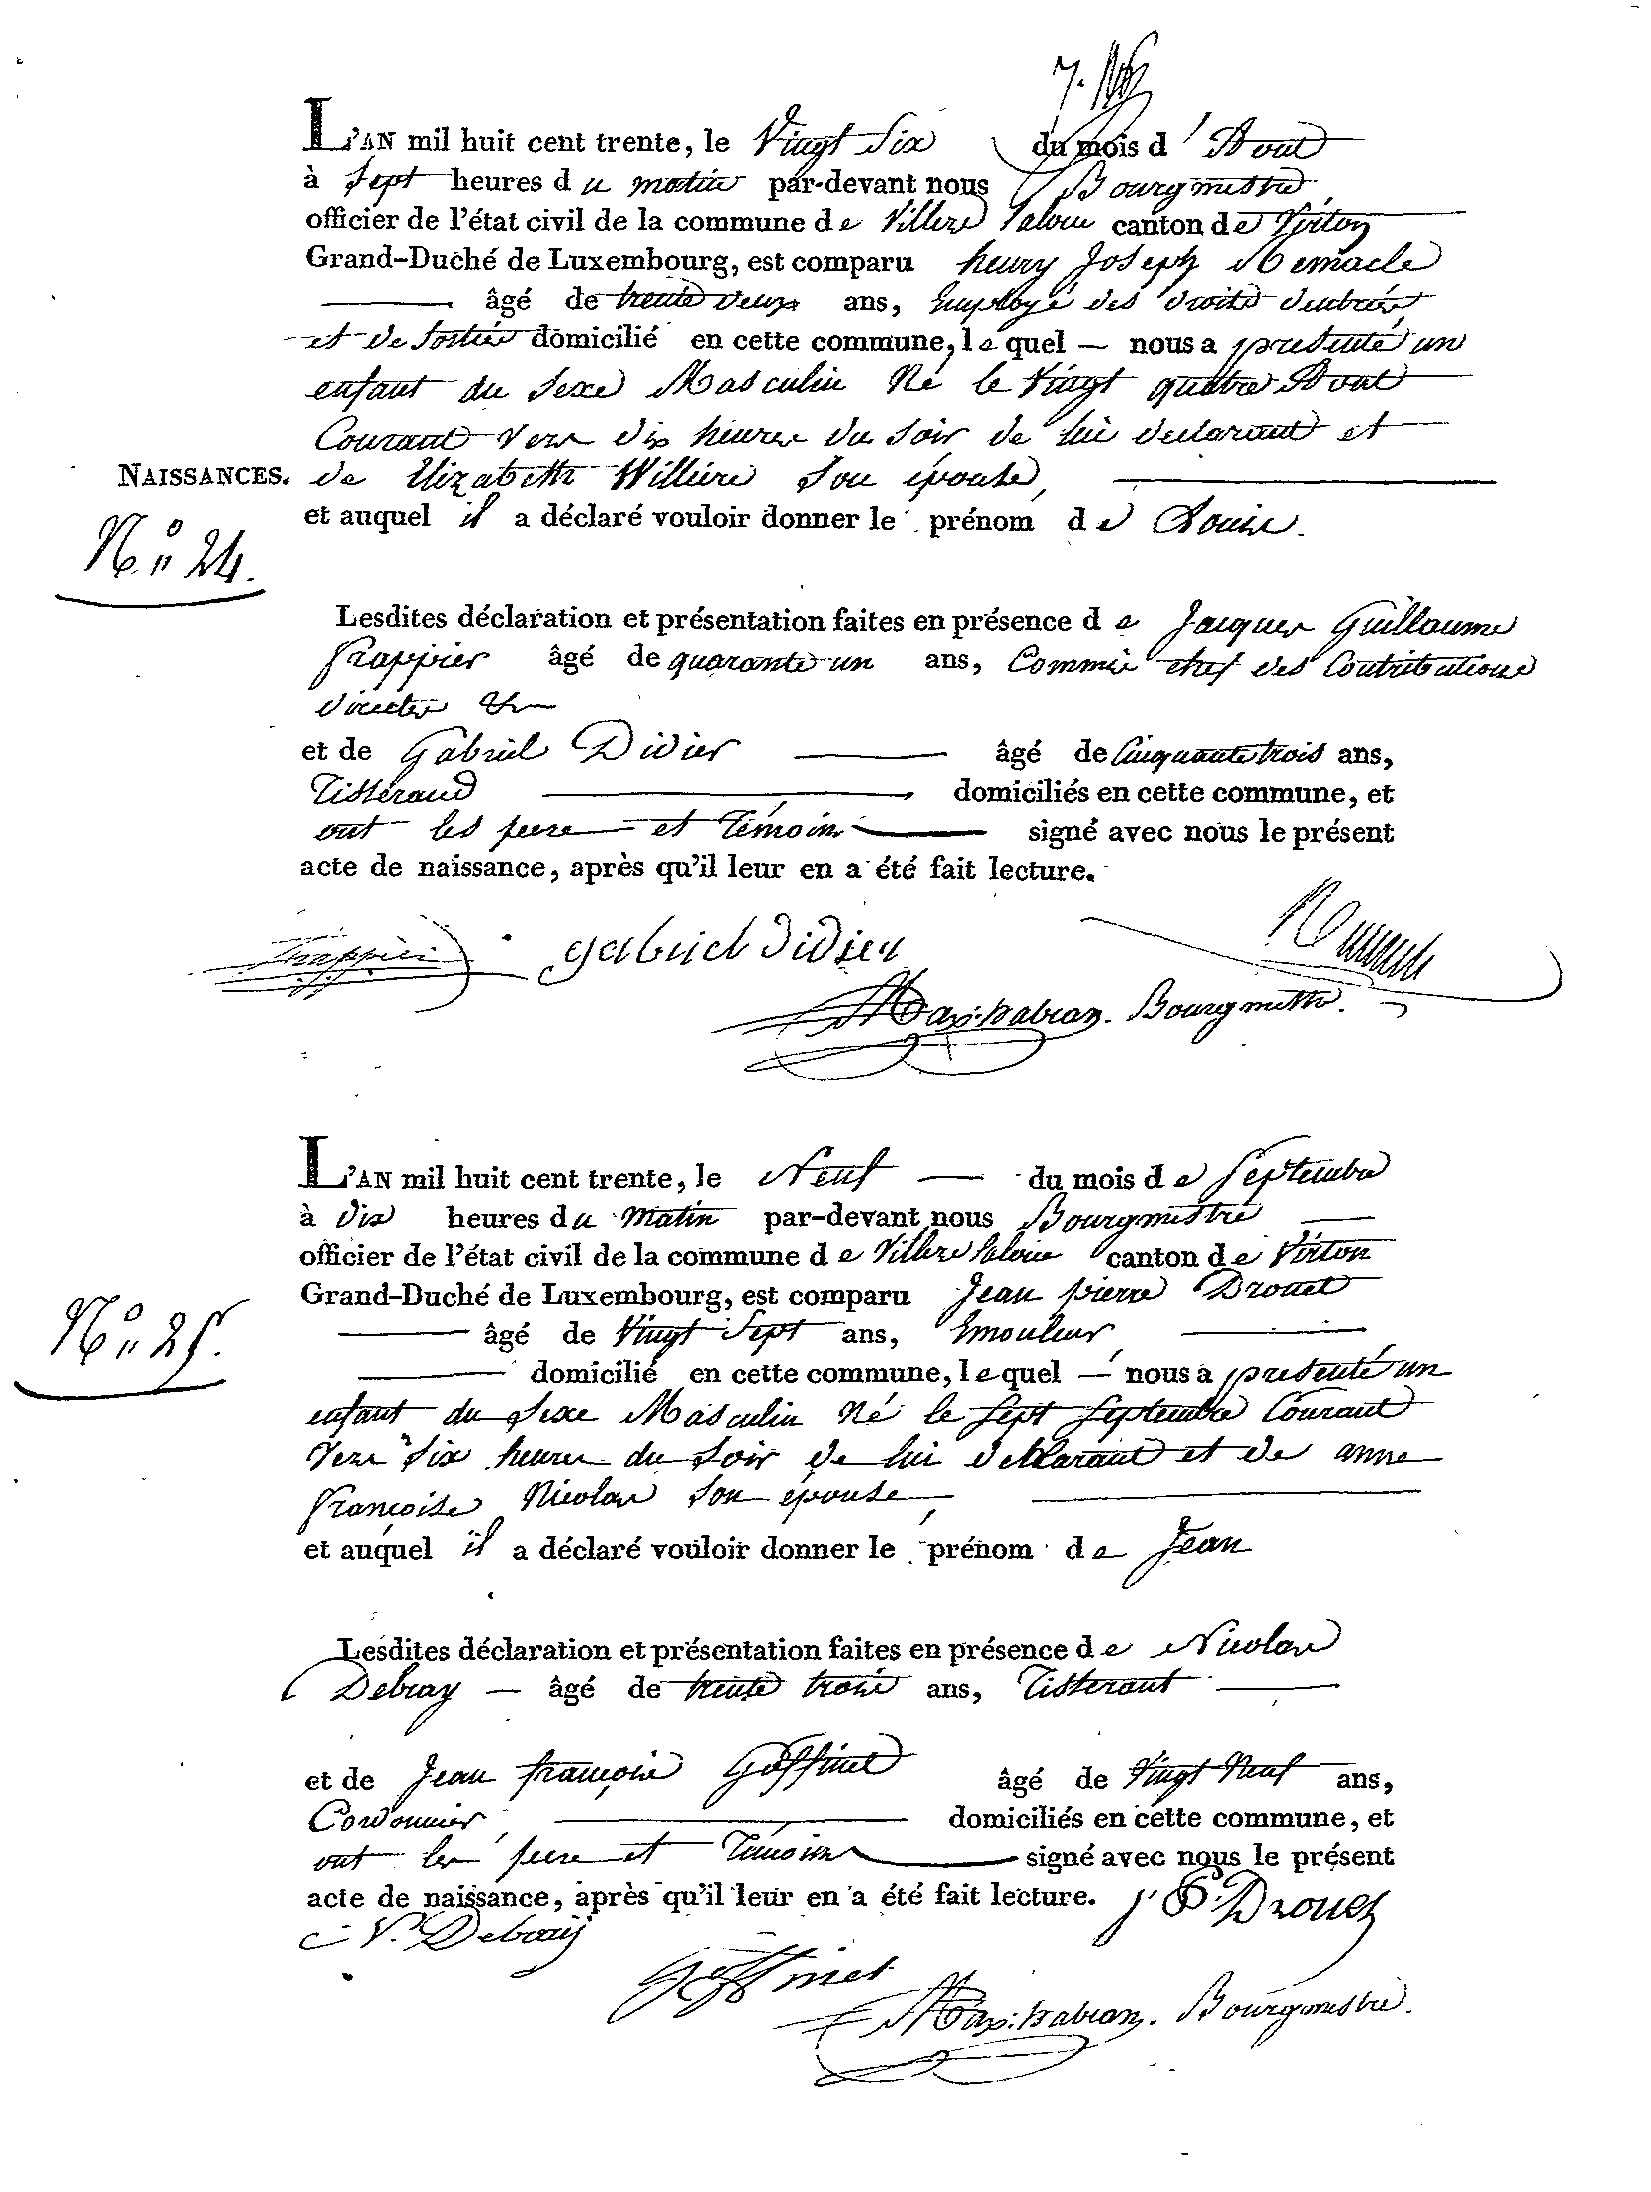 7.
L'AN mil huit cent trente, le Vingt Six du mois d'Aout
à Sept heures du matin par-devant nous Bourgmestre
officier de l'état civil de la commune de Villers Laloue canton de Virton
Grand-Duché de Luxembourg, est comparu henry Joseph Remacle
âgé de trente deux ans, Employé des droits d'entrée
et de Sortie domicilié en cette commune, lequel — nous a présenté un
enfant du Sexe Masculin Né le Vingt quatre Aout
Courant vers dix heures du Soir de lui declarant et
NAISSANCES. de Elizabeth Willière Son épouse,
et auquel il a déclaré vouloir donner le prénom de Louis.
N.° 24.
Lesdites déclaration et présentation faites en présence de Jacques Guillaume
frappier âgé de quarante un ans, Commis chef des Contributions
directes &
et de Gabriel Didier âgé de Cinquante trois ans,
Tisserand domiciliés en cette commune, et
ont les pere et Témoins signé avec nous le présent
acte de naissance, après qu'il leur en a été fait lecture.
frappier gabriel didier Remacle
Bourgmestre.
L'AN mil huit cent trente, le Neuf — du mois de Septembre
à dix heures du matin par-devant nous Bourgmestre
officier de l'état civil de la commune de Villers Laloue canton de Virton
Grand-Duché de Luxembourg, est comparu Jean pierre Drouet
N.° 25.
âgé de Vingt Sept ans, Emouleur,
domicilié en cette commune, lequel — nous a présenté un
enfant du Sexe Masculin Né le Sept Septembre Courant
vers Six heures du Soir de lui declarant et de anne
françoise Nicolas Son épouse,
et auquel il a déclaré vouloir donner le prénom de Jean
Lesdites déclaration et présentation faites en présence de Nicolas
Debray — âgé de trente trois ans, Tisserant
et de Jean françois Goffinet âgé de Vingt Neuf ans,
Cordonnier, domiciliés en cette commune, et
ont les pere et Témoins signé avec nous le présent
acte de naissance, après qu'il leur en a été fait lecture. J P Drouet
N. Debray
Goffinet
Bourgmestre.